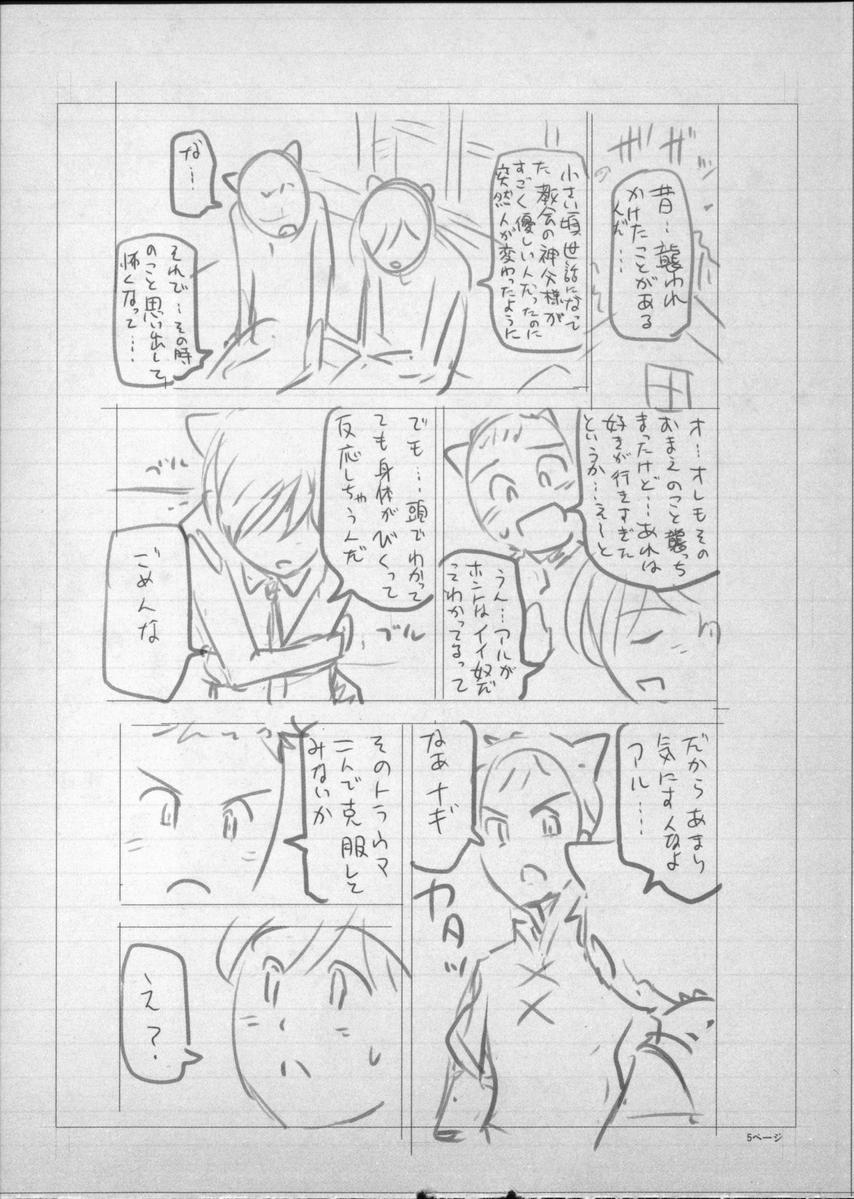 ザザザッ
昔…襲われ
かけたことがある
んだ…
小さい頃世話になって
た教会の神父様が
すごく優しい人だったのに
突然人が変わったように
な…
それで…その時
のこと思い出して
怖くなって…
オ…オレもその
おまえのこと襲っち
まったけど…あれは
好きが行きすぎた
というか…えーと
うん…アルが
ホントはイイ奴だ
ってわかってるって
でも…頭でわかって
ても身体がびくって
反応しちゃうんだ
ブル
ブル
ごめんな
だからあまり
気にすんなよ
アル…
なあナギ
ガタッ
そのトラウマ
二人で克服して
みないか
え?
5ページ